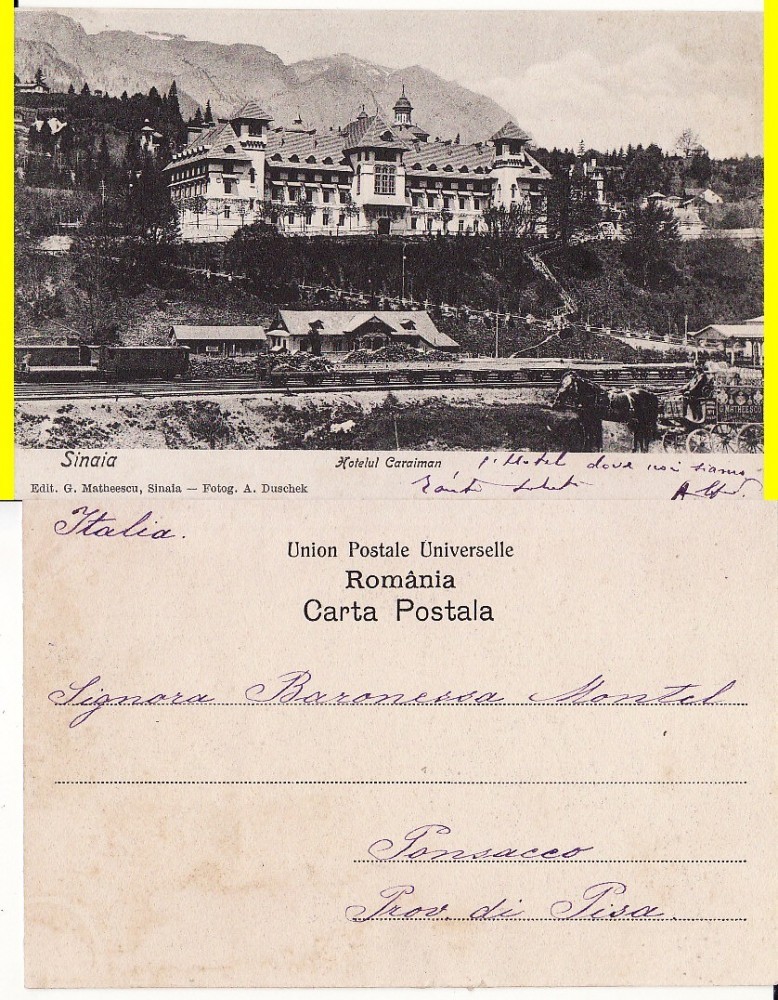 G. MATHEESCU
Sinaia
Hotelul Caraiman
Hotel dove noi siamo
Edit. G. Matheescu, Sinaia — Fotog. A. Duschek
Italia.
Union Postale Universelle
România
Carta Postala
Signora Baronessa Montel
Ponsacco
Prov. di Pisa.